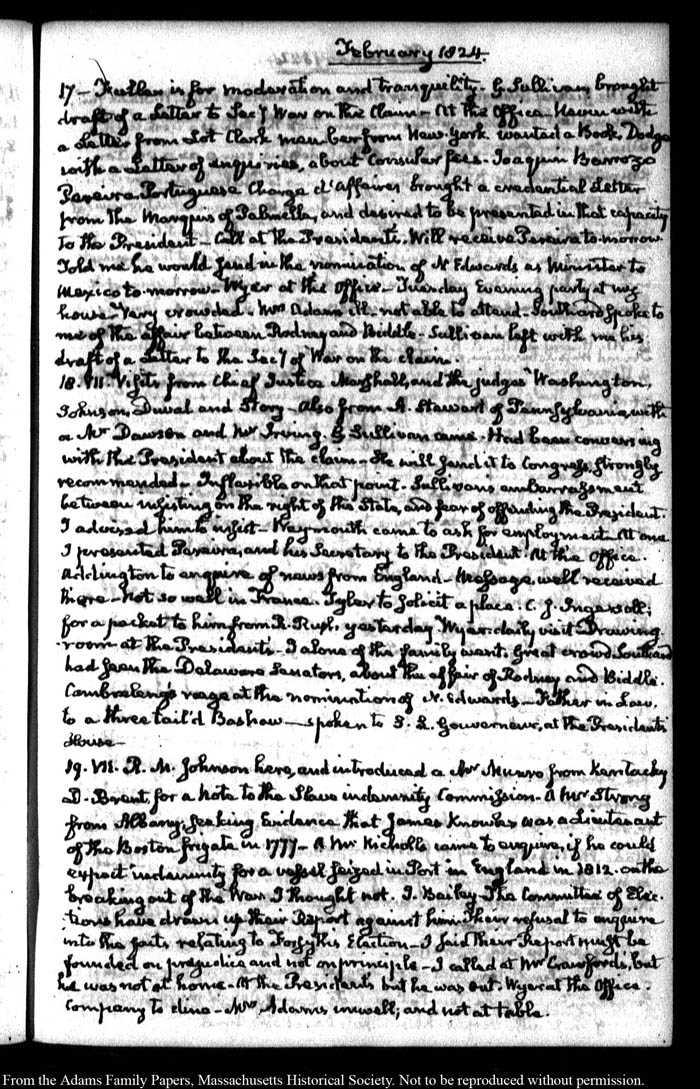 February 1824.
17 — is for moderation and tranquility. G. Sullivan, brought
draft of a Letter to Secy War on the Claim — At the Office. with
a Letter from Lot Clark member from New-York wanted a Book. Dodge
with a Letter of enquiries, about Consular fees. Joaquim Barrozo
Pereira Portuguese Charge d'Affaires brought a credential Letter
from the Marquis of Palmella, and desired to be presented in that capacity
to the President — Call at the Presidents. Will receive Pereira to-morrow
Told me he would send in the nomination of N Edwards as Minister to
Mexico to-morrow. Wyer at the Office — Tuesday Evening party at my
house. Very crowded. Mrs Adams ill — not able to attend — Southard spoke to
me of the affair between Rodney and Biddle — Sullivan left with me his
draft of a Letter to the Secy of War on the claim.
18. VII. Visits from Chief Justice Marshall, and the judges Washington,
Johnson, Duval and Story — Also from A. Stewart of Pennsylvania with
a Mr Dawson and Mr Irving. G Sullivan came. Had been conversing
with the President about the claim — He will send it to Congress, strongly
recommended — Inflexible on that point. Sullivan's embarrassment
between insisting on the right of the State, and fear of offending the President.
I advised him to insist — Weymouth came to ask for employment. At one
I presented Pereira, and his Secretary to the President. At the Office.
Addington to enquire of news from England — Message, well received
there — not so well in France. Tyler to solicit a place. C. J. Ingersoll;
for a packet to him from R. Rush, yesterday. Wyer. daily visit. Drawing
room at the Presidents — I alone of the family went. Great crowd. Southard
had seen the Delaware Senators, about the affair of Rodney and Biddle.
Cambreleng's rage at the nomination of N. Edwards — Father in Law,
to a three tail'd Bashaw — spoken to S. L. Gouverneur, at the Presidents
House —
19. VII. R. M. Johnson here, and introduced a Mr Munro from Kentucky
D. Brent, for a note to the Slave indemnity Commission. A Mr Strong
from Albany, seeking Evidence that James Knowles was a Lieutenant
of the Boston frigate in 1777 — A Mr Nicholls came to enquire, if he could
expect indemnity for a vessel seized in Port in England in 1812. on the
breaking out of the War. I thought not. J. Bailey. The Committee of Elec-
tions have drawn up their Report against him. Their refusal to enquire
into the facts relating to Forsyth's Election — I said their Report must be
founded on prejudice and not on principle — I called at Mr Crawfords, but
he was not at home. At the Presidents but he was out. Wyer at the Office.
Company to dine — Mrs Adams unwell; and not at table.
From the Adams Family Papers, Massachusetts Historical Society. Not to be reproduced without permission.